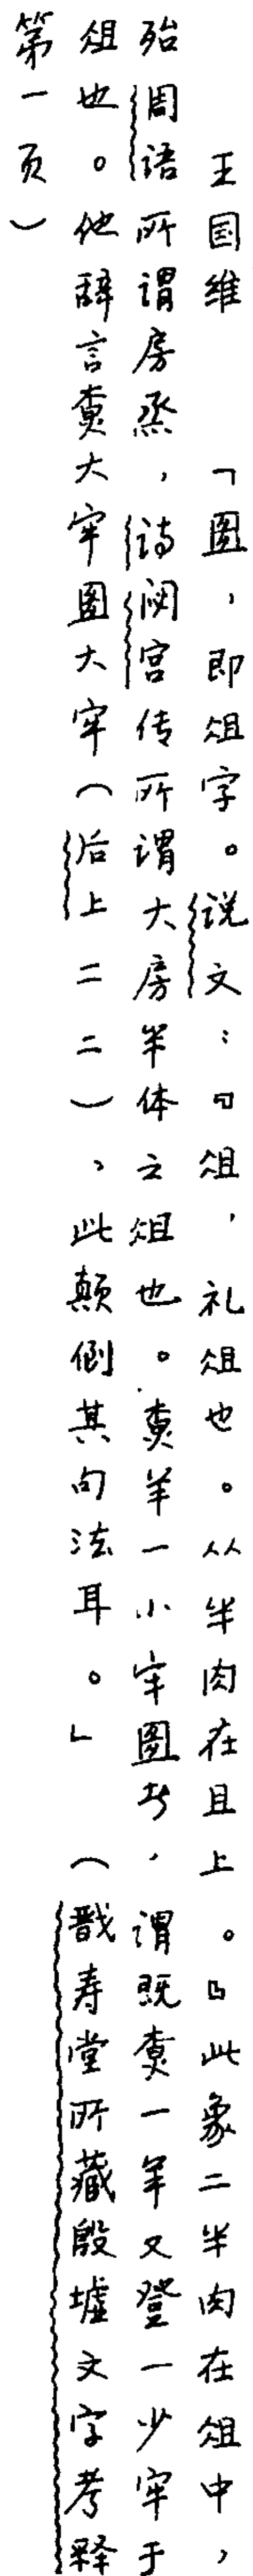 王国维　「圂，即俎字。说文：『俎，礼俎也。从半肉在且上。』此象二半肉在俎中，
殆周语所谓房烝，诗閟宫传所谓大房半体之俎也。𡙕羊一小牢圂者，谓既𡙕一羊又登一少牢于
俎也。他辞言𡙕大牢圂大牢（后上二二），此颠倒其句法耳。」（戬寿堂所藏殷墟文字考释
第一页）